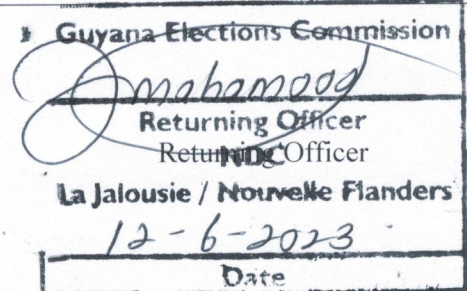 Guyana Elections Commission
mahamood
Returning Officer
Returning Officer
NDC
La Jalousie / Nouvelle Flanders
12-6-2023
Date